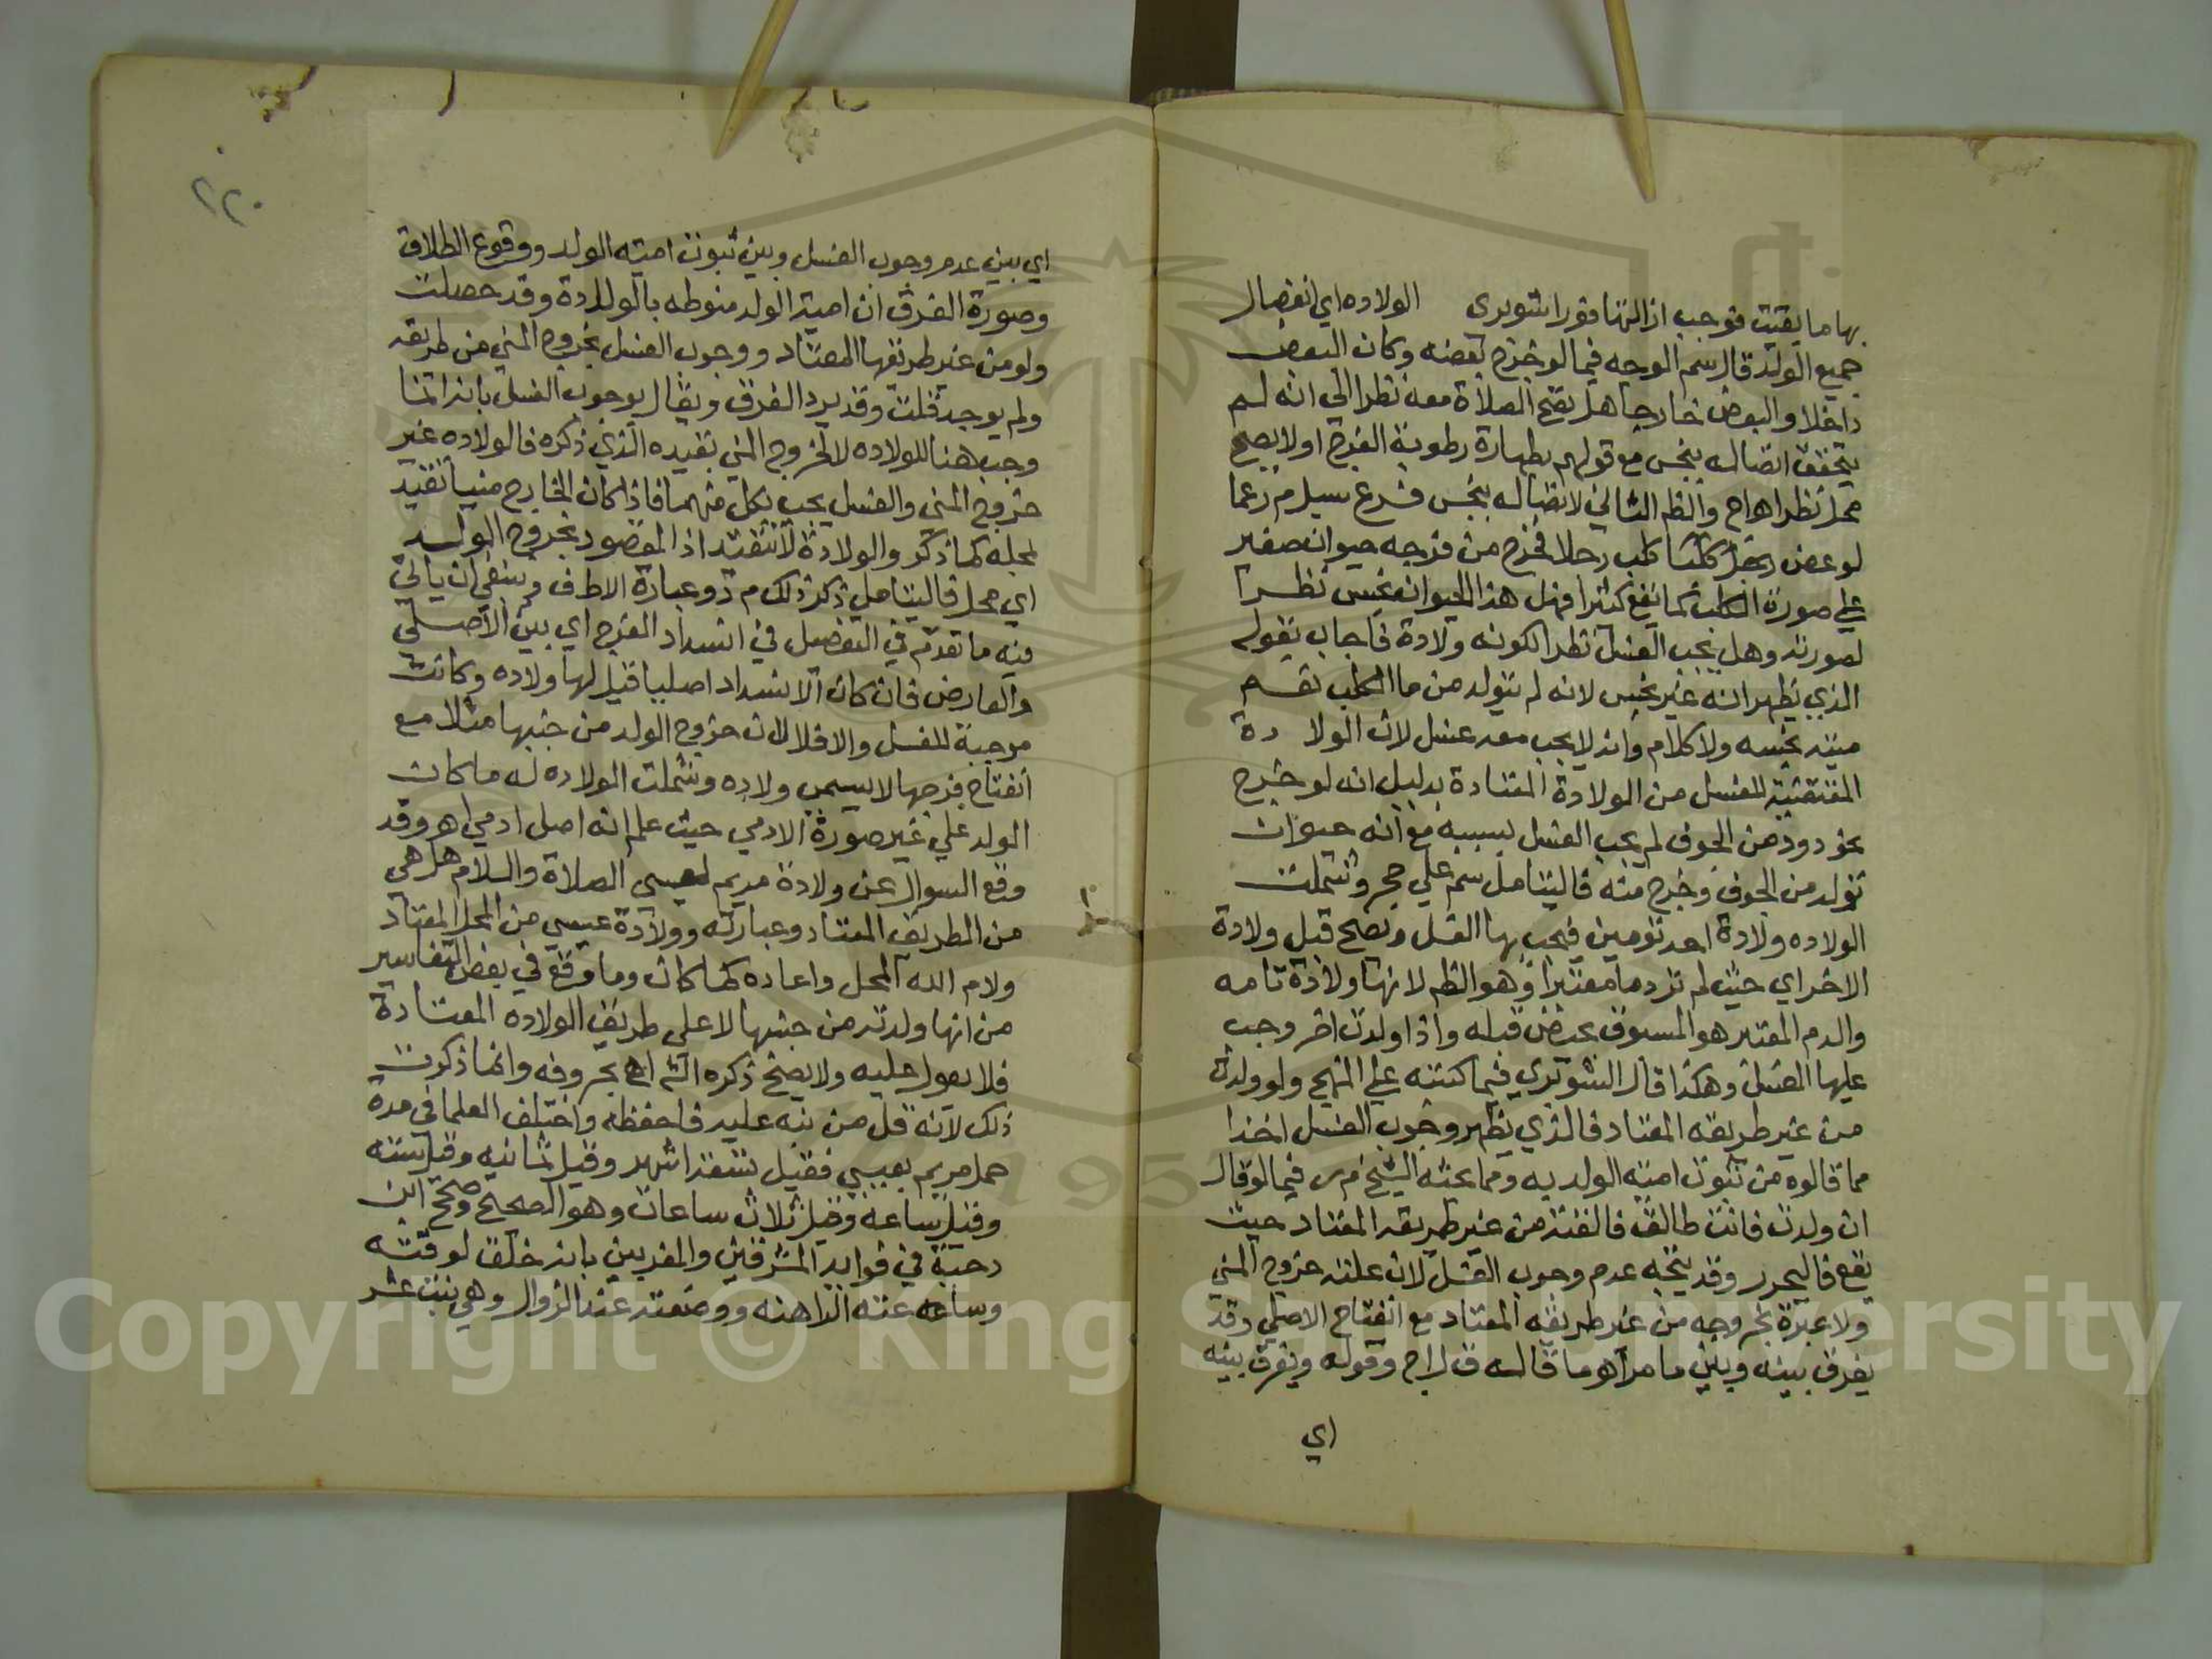 بها ما بقيت فوجب ازالتها فورا شوبرى الولاده اي انفصال
جميع الولد قال سم الوجه فيما لو خرج بعضه وكان البعض
داخلا والبعض خارجا هل تصح الصلاة معه نظرا الي انه لم
يتحقق اتصاله بنجس مع قولهم بطهارة رطوبة الفرج اولا يصح
محل نظر اهـ اج والظ الثاني لاتصاله بنجس فرع سيل م ر عما
لو عض رجل كلبا كلب رجلا فخرج من فرجه حيوان صغير
علي صورة الكلب كما يقع كثيرا فهل هذا الحيوان نجس نظرا
لصورته وهل يجب الغسل نظرا لكونه ولادة فاجاب بقوله
الذي يظهر انه غير نجس لانه لم يتولد من ماالكلب نعم
ميتته نجسه ولا كلام وانه لا يجب معه غسل لان الولا دة
المقتضية للغسل من الولادة المعتادة بدليل انه لو خرج
نحو دود من الجوف لم يجب الغسل بسببه مع انه حيوان
تولد من الجوف وخرج منه فاليتامل سم علي حجر وشملت
الولاده ولادة احد توءمين فيجب بها الغسل ويصح قبل ولادة
الاخر اي حيث لم تر دما معتبرا وهو الظ لانها ولادة تامه
والدم المعتبر هو المسبوق بحيض قبله واذا ولدت اخر وجب
عليها الغسل وهكذا قال الشوبري فيما كتبته علي المنهج ولو ولدت
من غير طريقه المعتاد فالذي يظهر وجوب الغسل اخذا
مما قالوه من ثبوت امية الولد به ومما بحثه الشيخ م ر فيما لو قال
ان ولدت فانت طالق فالقته من غير طريقه المعتاد حيث
يقع فاليحرر وقد يتجه عدم وجوب الغسل لان علته خروج المني
ولا عبرة بخروجه من غير طريقه المعتاد مع انفتاح الاصلي وقد
يفرق بينه وبين ما مر اهـ ما قاله ق ل اج وقوله ويفرق بينه
اي
٢٢٠
اي بين عدم وجوب الغسل وبين ثبوت امية الولد ووقوع الطلاق
وصورة الفرق ان امية الولد منوطه بالولادة وقد حصلت
ولو من غير طريقها المعتاد ووجوب الغسل بخروج المني من طريقه
ولم يوجد قلت وقد يرد الفرق ويقال بوجوب الغسل بانه انما
وجب هنا للولاده لا لخروج المني بقيده الذي ذكره فالولاده غير
خروج المني والغسل يجب بكل منهما فاذا كان الخارج منيا تقيد
بمحله كما ذكر والولادة لا تتقيد اذ المقصود بخروج الولد
اي محل فاليتامل ذكر ذلك م د وعبارة الاطف وينبغي ان ياتي
فيه ما تقدم في التفصيل في انسداد الفرج اي بين الاصلي
والعارض فان كان الانسداد اصليا قيل لها ولاده وكانت
موجبة للغسل والا فلا لان خروج الولد من جنبها مثلا مع
انفتاح فرجها لا يسمي ولاده وشملت الولاده له ما كان
الولد علي غير صورة الادمي حيث علم انه اصل ادمي اهـ وقد
وقع السوال عن ولادة مريم لعيسي الصلاة والسلام هل هي
من الطريق المعتاد وعبارته وولادة عيسي من المحل المعتاد
ولام الله المحل واعاده كما كان وما وقع في بعض التفاسير
من انها ولدته من جنبها لا علي طريق الولاده المعتادة
فلا يعول عليه ولا يصح ذكره اهـ بحروفه وانما ذكرت
ذلك لانه قل من نبه عليه فاحفظه واختلف العلما في مدة
حمل مريم بعيسي فقيل تسعة اشهر وقيل ثمانيه وقيل ستة
وقيل ساعة وقيل ثلاث ساعات وهو الصحيح وصحح ابن
دحية في فوايد المشرقين والمغربين بانه خلق لوقته
وساعته الراهنه ووضعته عند الزوال وهي بنت عشر
Copyright © King Saud University